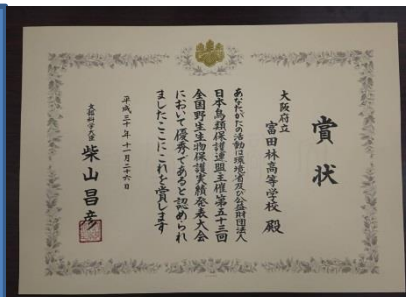 賞状
大阪府立
富田林高等学校 殿
あなたがたの活動は環境省及び公益財団法人
日本鳥類保護連盟主催第五十三回
全国野生生物保護実績発表大会
において優秀であると認められ
ましたここにこれを賞します
平成三十年十一月二十六日
文部科学大臣
柴山昌彦